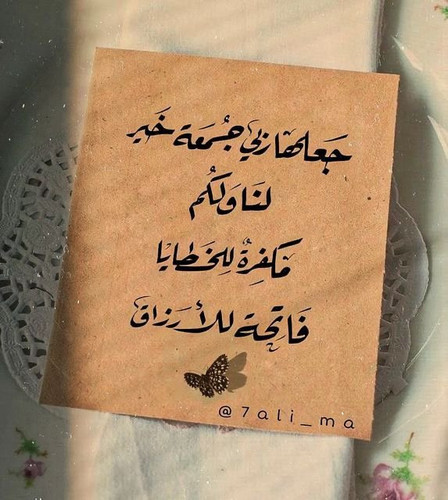 جَعلها ربي جُمعَة خَير
لنَا وَلكُم
مَكفِرةٌ لِلخَطايَا
فَاتِحة للأرزاق
@7ali_ma